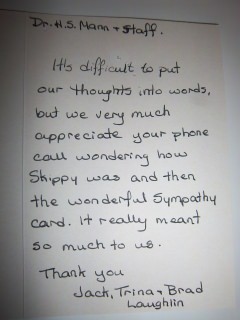 Dr. H.S. Mann + Staff.
It's difficult to put
our thoughts into words,
but we very much
appreciate your phone
call wondering how
Skippy was and then
the wonderful Sympathy
card. It really meant
so much to us.
Thank you
Jack, Trina + Brad
Laughlin